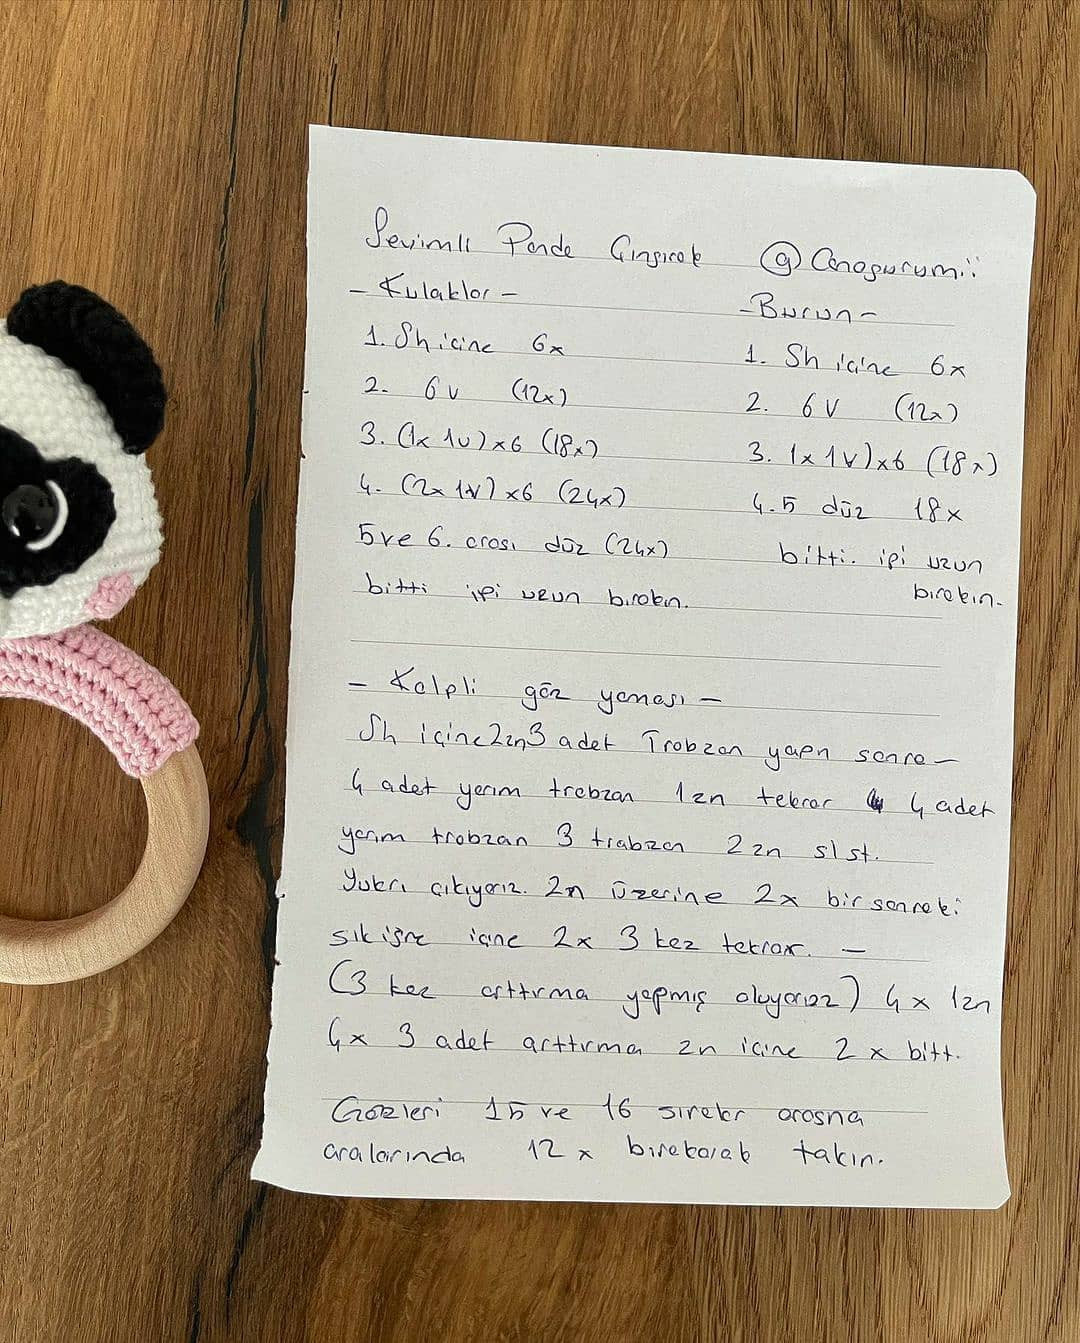 Sevimli Panda Çıngırak @Canagurumii
- Kulaklar -
1. Sh içine 6x
2. 6v (12x)
3. (1x 1v)x6 (18x)
4. (2x 1v)x6 (24x)
5 ve 6. arası düz (24x)
bitti ipi uzun bırakın.
- Burun -
1. Sh içine 6x
2. 6V (12x)
3. 1x1v)x6 (18x)
4.5 düz 18x
bitti. ipi uzun
bırakın.
- Kalpli göz yaması -
Sh içine 2zn 3 adet Trabzan yapn sonra -
4 adet yarım trabzan 1zn tekrar 4 adet
yarım trabzan 3 trabzan 2zn slst.
Yukrı çıkıyorız. 2n üzerine 2x bir sonraki
sık içine 2x 3 kez tekrar. -
(3 kez arttırma yapmış oluyoruz) 4x 1zn
4x 3 adet arttırma zn içine 2x bitt.
Gözleri 15 ve 16 sıralar arasına
aralarında 12x bırakarak takın.